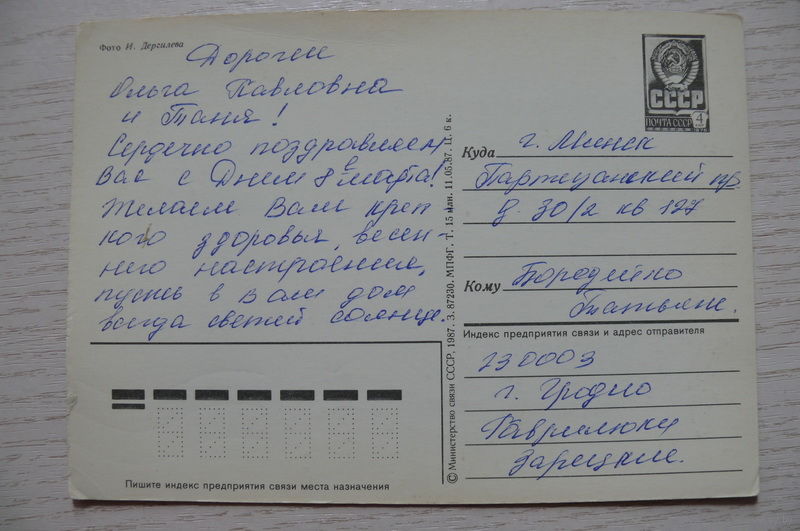 Фото И. Дергилева
Дорогие
Ольга Павловна
и Таня!
Сердечно поздравляем
Вас с Днем 8 марта!
Желаем Вам креп-
кого здоровья, весен-
него настроения,
пусть в Вам дом
всегда светит солнце.
СССР
ПОЧТА СССР
4
Куда г. Минск
Партизанский пр.
д. 30/2 кв 127
Кому Бородейко
Татьяне.
Индекс предприятия связи и адрес отправителя
230003
г. Гродно
Гаврилюки
Зарецкие.
Пишите индекс предприятия связи места назначения
© Министерство связи СССР, 1987. З. 87230. МПФГ. Т. 15 млн. 11.05.87. Ц. 6 к.